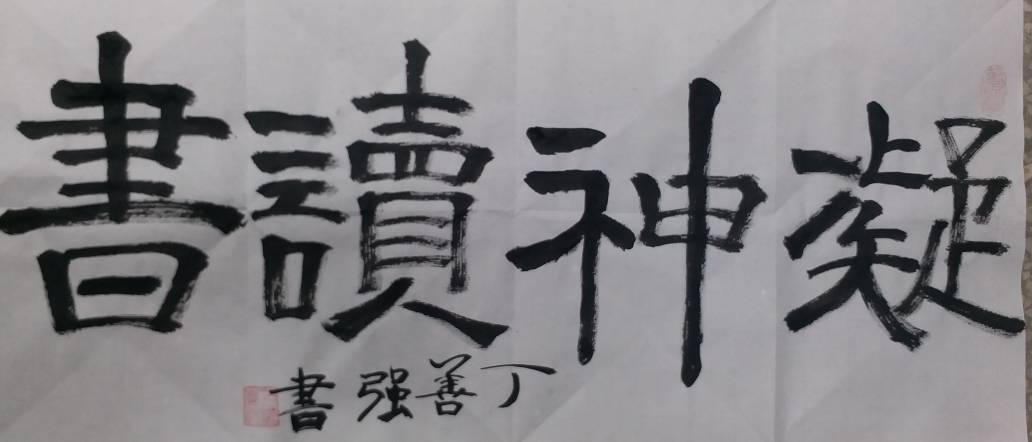 凝神讀書
丁善强書